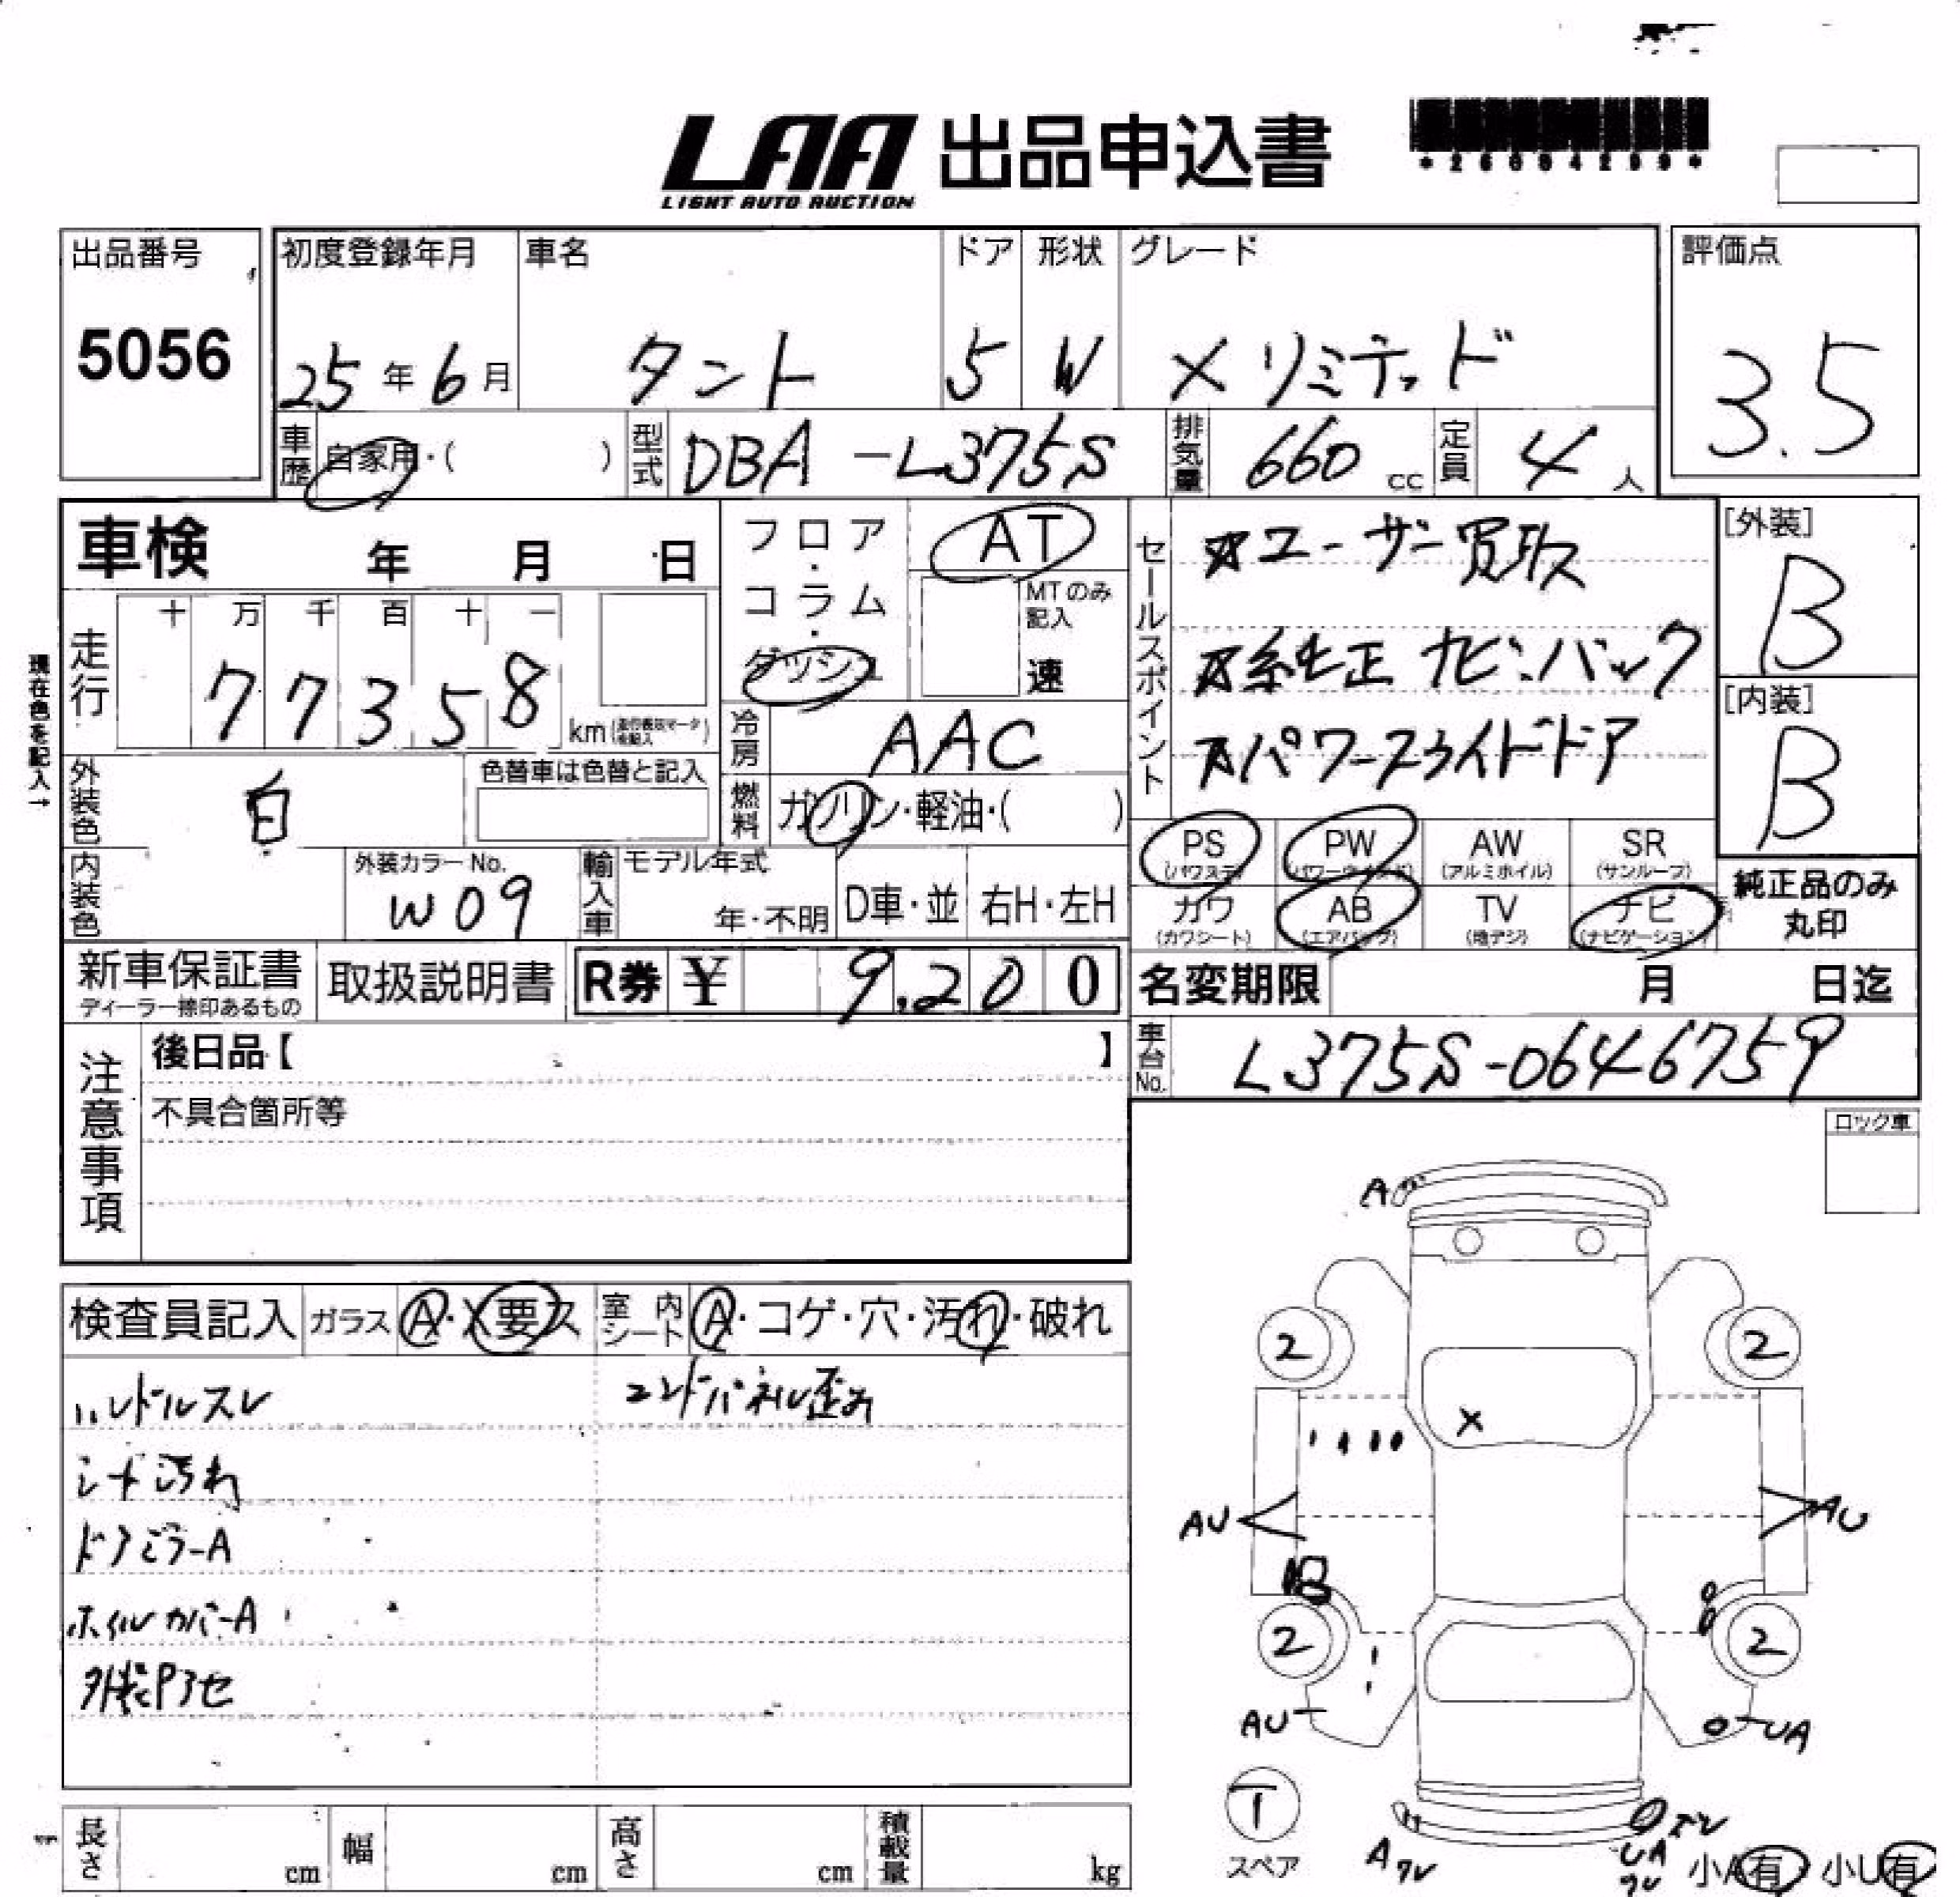 LAA 出品申込書
LIGHT AUTO AUCTION
*26004299*
出品番号
5056
初度登録年月
25年6月
車名
タント
ドア
5
形状
W
グレード
Xリミテッド
評価点
3.5
車歴 自家用・( )
型式 DBA-L375S
排気量 660 cc
定員 4人
車検 年 月 日
フロア・コラム・ダッシュ
AT
MTのみ記入
速
セールスポイント
☆ユーザー買取ス
☆純正ナビ.バック
☆パワースライドドア
[外装]
B
[内装]
B
現在色を記入→
走行
十 万 千 百 十 一
77358
km
冷房 AAC
外装色 白
色替車は色替と記入
燃料 ガソリン・軽油・( )
内装色
外装カラーNo.
W09
輸入車 モデル年式
年・不明
D車・並
右H・左H
PS (パワステ)
PW (パワーウインド)
AW (アルミホイル)
SR (サンルーフ)
カワ (カワシート)
AB (エアバッグ)
TV (地デジ)
ナビ (ナビゲーション)
純正品のみ
丸印
新車保証書
ディーラー捺印あるもの
取扱説明書
R券 ¥ 9,200
名変期限 月 日迄
車台No. L375S-0646759
注意事項
後日品【 】
不具合箇所等
ロック車
検査員記入
ガラス A・X要ス
室内シート A・コゲ・穴・汚れ・破れ
ハンドルスレ
エンドパネル歪み
シート汚れ
ドアミラーA
ホイルカバーA
外装Pアセ
A
2
2
X
AU
AU
2
2
AU
UA
T
スペア
A ワレ
ズレ
UA
ワレ
小A有
小U有
長さ cm
幅 cm
高さ cm
積載量 kg